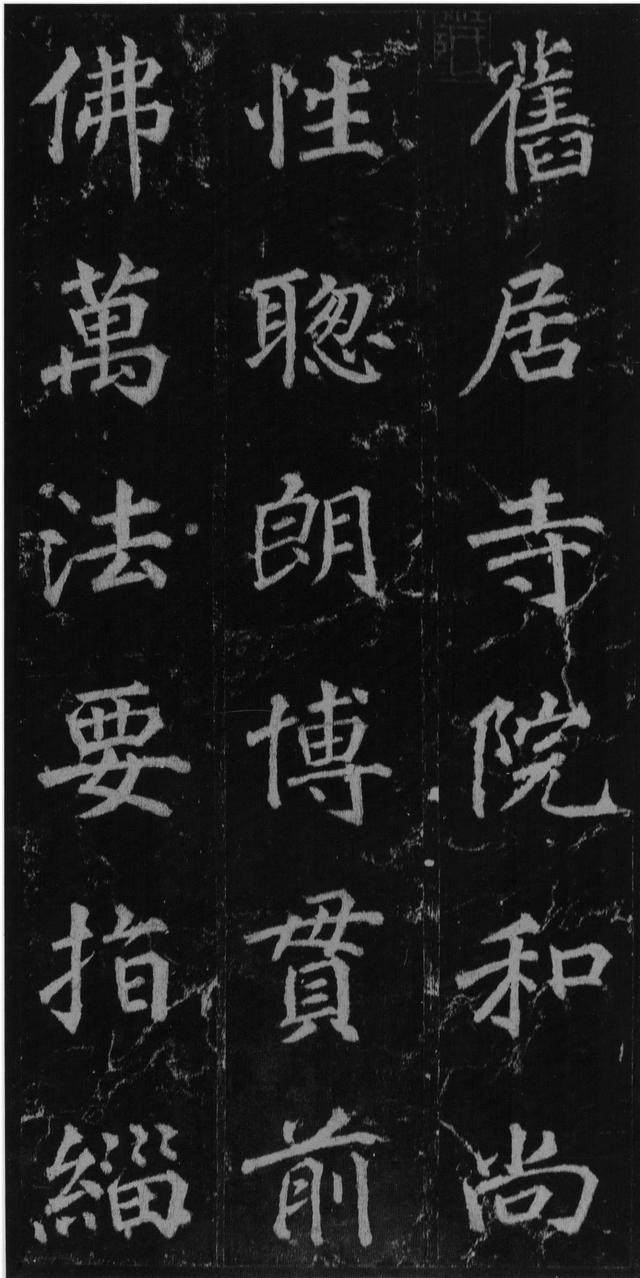 舊居寺院和尚
性聰朗博貫前
佛萬法要指緇